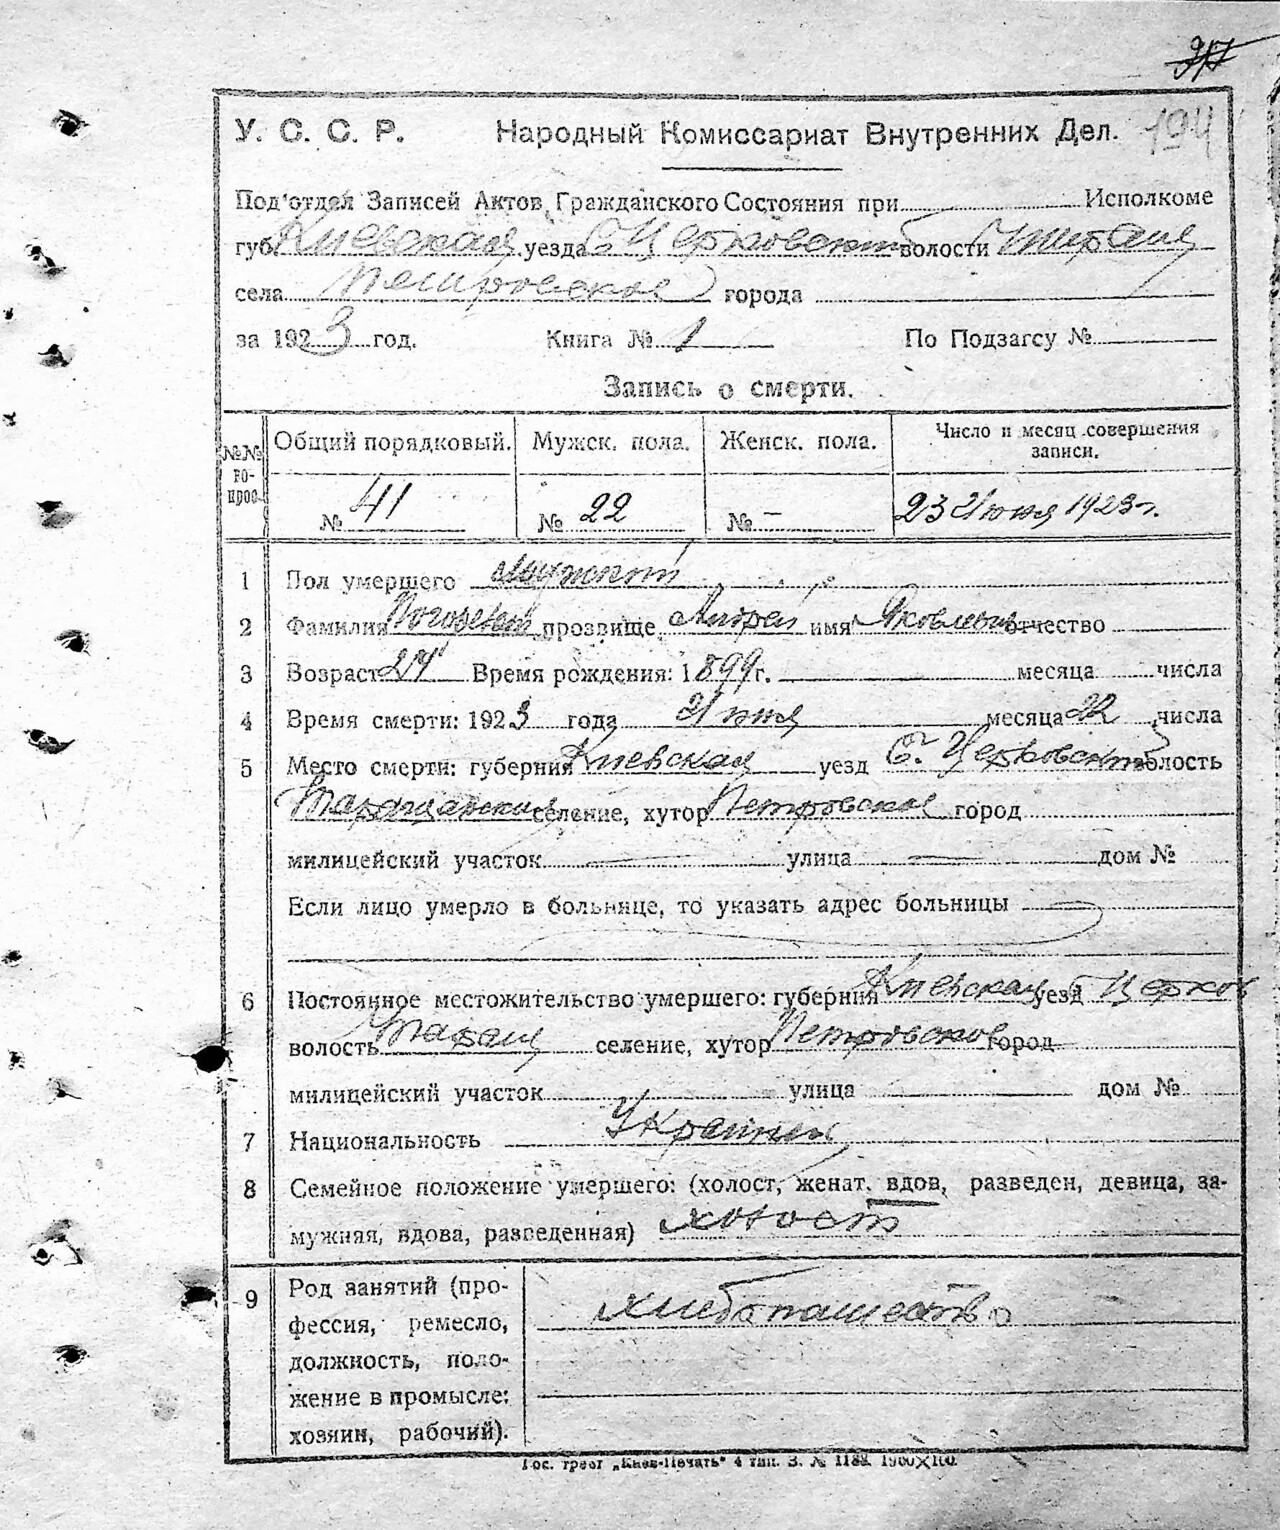 917
194
У. С. С. Р. Народный Комиссариат Внутренних Дел.
Под'отдел Записей Актов Гражданского Состояния при Исполкоме
губ. Киевская уезда Б Церковский волости
села Петровское города
за 1923 год. Книга № 1 По Подзагсу №
Запись о смерти.
№№ вопрос. Общий порядковый. Мужск. пола. Женск. пола. Число и месяц совершения записи.
№ 41 № 22 № – 23 Июня 1923 г.
1 Пол умершего Мужской
2 Фамилия прозвище Андрей имя Яковлевич отчество
3 Возраст 24 Время рождения: 1899 г. месяца числа
4 Время смерти: 1923 года Июня месяца 22 числа
5 Место смерти: губерния Киевская уезд Б. Церковский волость
Таращанская селение, хутор Петровское город
милицейский участок — улица — дом №
Если лицо умерло в больнице, то указать адрес больницы
6 Постоянное местожительство умершего: губерния Киевская уезд Б Церков
волость Таращ селение, хутор Петровское город
милицейский участок улица дом №
7 Национальность Украинец
8 Семейное положение умершего: (холост, женат, вдов, разведен, девица, за-
мужная, вдова, разведенная) холост
9 Род занятий (про-
фессия, ремесло,
должность, поло-
жение в промысле:
хозяин, рабочий).
хлебопашество
Гос. трест „Киев-Печать" 4 тип. З. № 1182